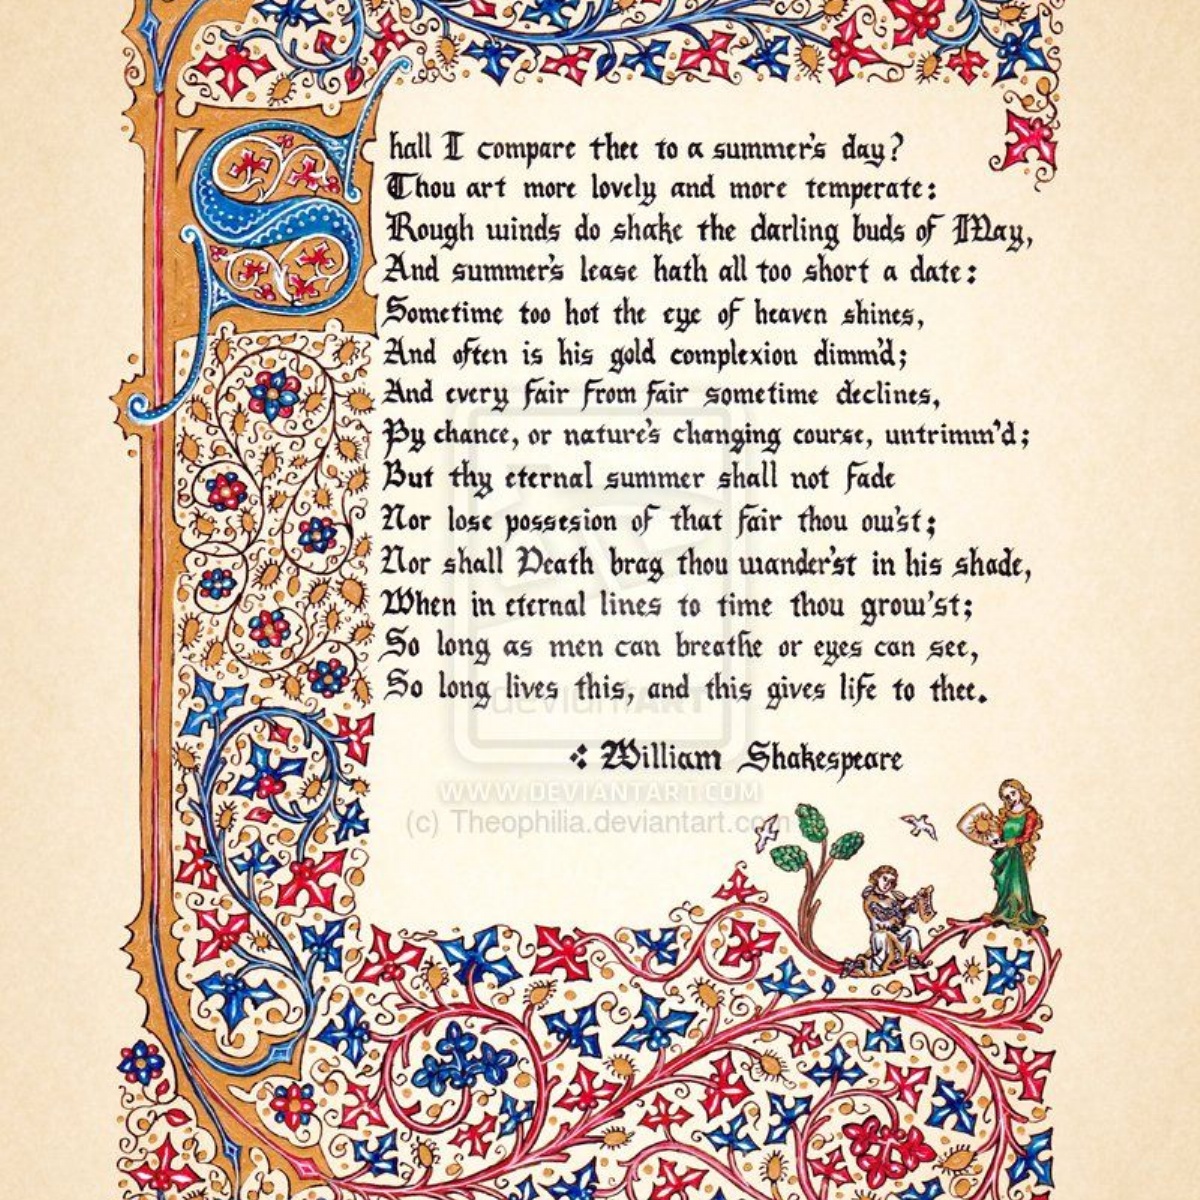 Shall I compare thee to a summer's day?
Thou art more lovely and more temperate:
Rough winds do shake the darling buds of May,
And summer's lease hath all too short a date:
Sometime too hot the eye of heaven shines,
And often is his gold complexion dimm'd;
And every fair from fair sometime declines,
By chance, or nature's changing course, untrimm'd;
But thy eternal summer shall not fade
Nor lose possesion of that fair thou ow'st;
Nor shall Death brag thou wander'st in his shade,
When in eternal lines to time thou grow'st;
So long as men can breathe or eyes can see,
So long lives this, and this gives life to thee.
William Shakespeare
deviantART
WWW.DEVIANTART.COM
(c) Theophilia.deviantart.com